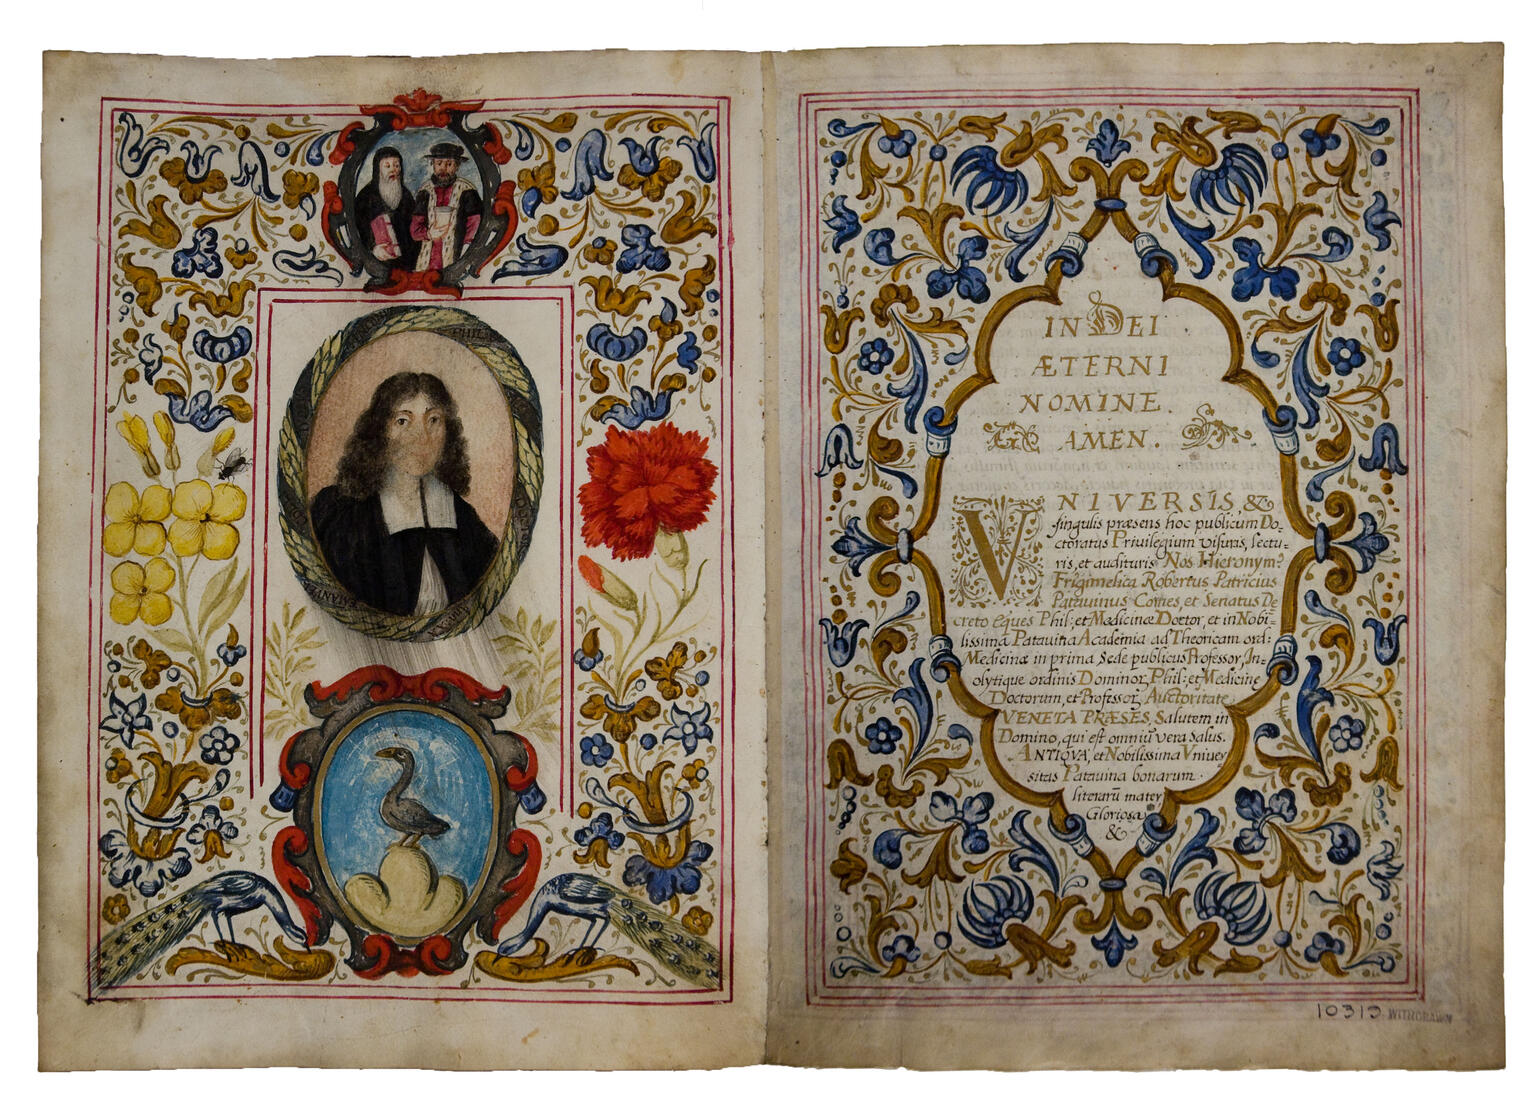 IN DEI
ÆTERNI
NOMINE.
AMEN.
VNIVERSIS, &
singulis præsens hoc publicum Do-
ctoratus Priuilegium visuris, lectu-
ris, et audituris Nos Hieronym⁹
Frigimelica Robertus Patricius
Patauinus Comes, et Senatus De
creto Eques Phil: et Medicinæ Doctor, et in Nobi-
lissima Patauina Academia ad Theoricam ord:
Medicinæ in prima Sede publicus Professor, In-
clytique ordinis Dominoꝝ Phil: et Medicine
Doctorum, et Professoꝝ Auctoritate
VENETA PRÆSES, Salutem in
Domino, qui est omniū vera Salus.
ANTIQVA, et Nobilissima Vniuer
sitas Patauina bonarum
literarū mater
Gloriosa
&
10313 WITHDRAWN